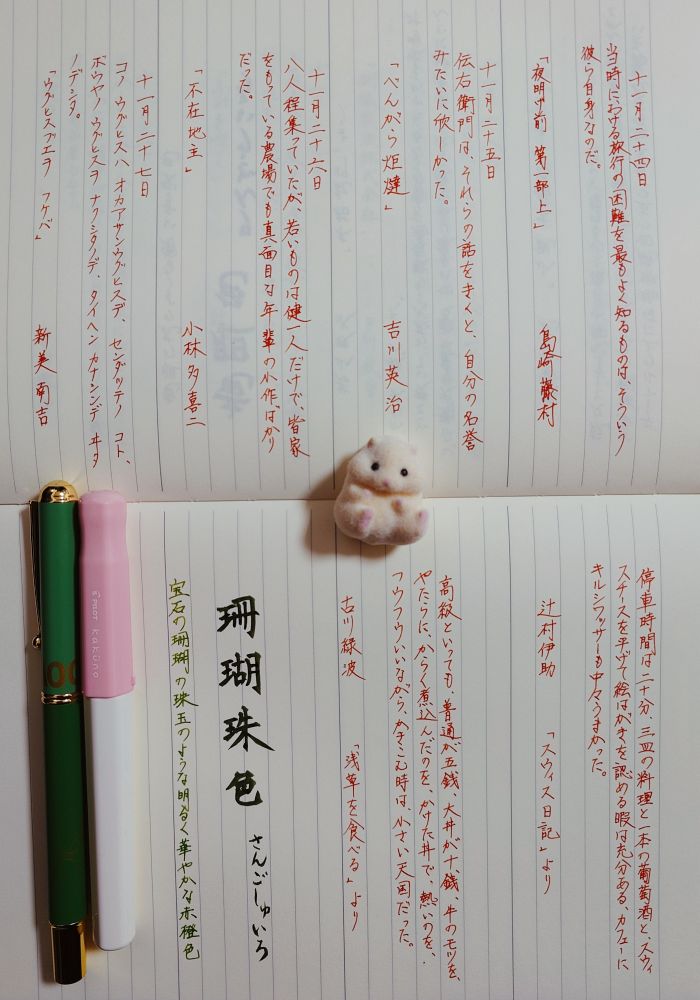 十一月二十四日
当時における旅行の困難を最もよく知るものは、そういう
彼ら自身なのだ。
「夜明け前 第一部上」 島崎藤村
十一月二十五日
伝右衛門は、それらの話をきくと、自分の名誉
みたいに欣しかった。
「べんがら炬燵」 吉川英治
十一月二十六日
八人程集っていたが、若いものは健一人だけで、皆家
をもっている農場でも真面目な年輩の小作ばかり
だった。
「不在地主」 小林多喜二
十一月二十七日
コノ ウグヒスハ オカアサンウグヒスデ、センダッテノ コト、
ボウヤノ ウグヒスヲ ナクシタノデ、タイヘン カナシンデ ヰタ
ノデシタ。
「ウグヒスブエヲ フケバ」 新美南吉
停車時間は二十分、三皿の料理と一本の葡萄酒と、スウィ
スチースを平げて絵はがきを認める暇は充分ある、カフェーに
キルシワッサーも中々うまかった。
辻村伊助 「スウィス日記」より
高級といっても、普通が五銭、大丼が十銭、牛のモツを、
やたらに、からく煮込んだのを、かけた丼で、熱いのを、
フウフウいいながら、かきこむ時は、小さい天国だった。
古川緑波 「浅草を食べる」より
珊瑚珠色 さんごしゅいろ
宝石の珊瑚の珠玉のような明るく華やかな赤橙色
PILOT kakuno